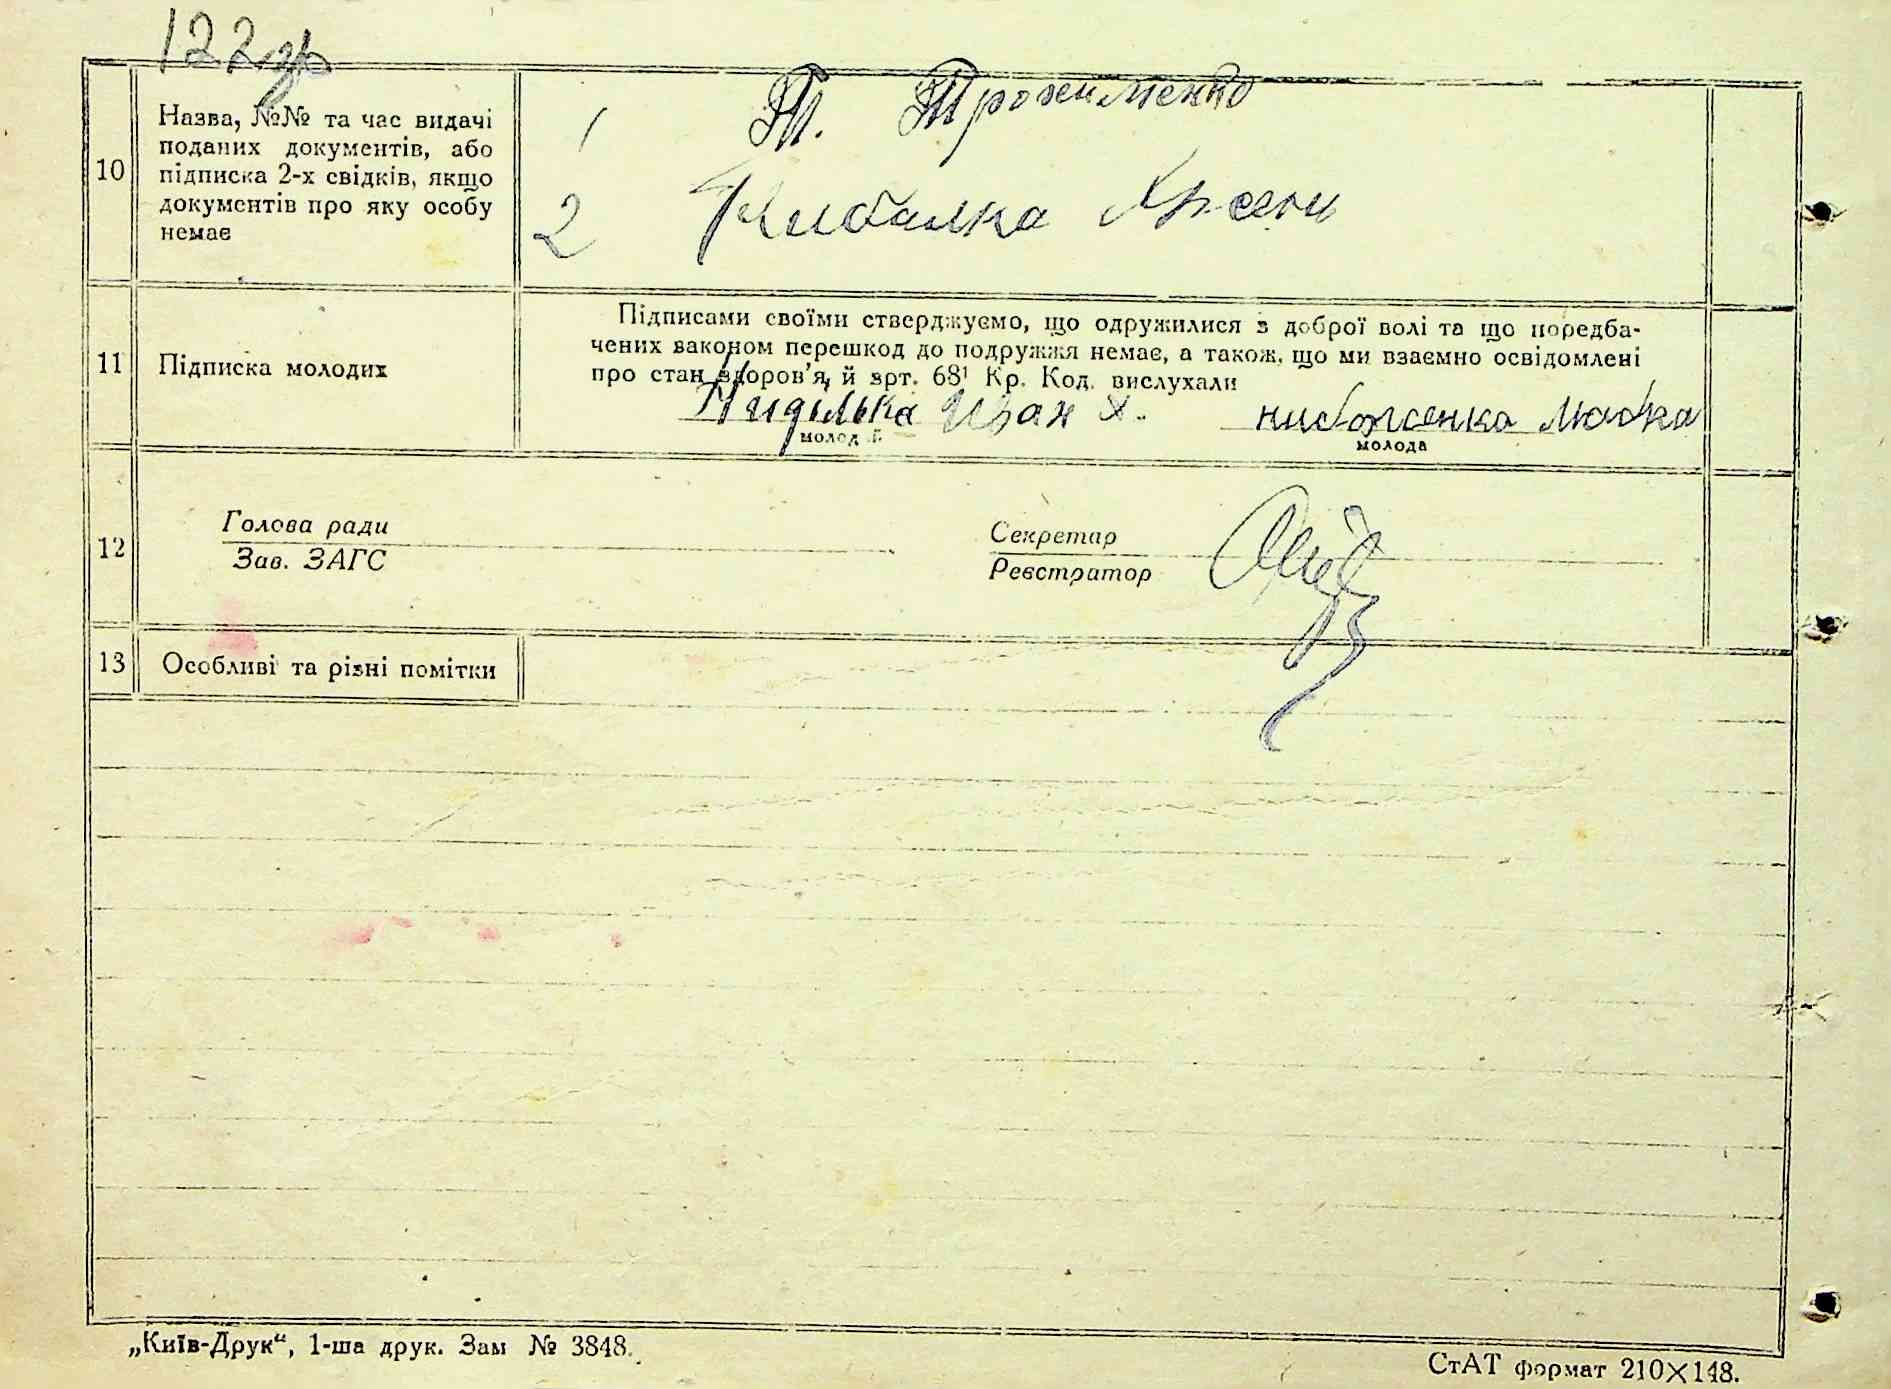 122зв
10
Назва, №№ та час видачі
поданих документів, або
підписка 2-х свідків, якщо
документів про яку особу
немає
1 Т. Трохименко
2 Кибалка
11
Підписка молодих
Підписами своїми стверджуємо, що одружилися з доброї волі та що передба-
чених законом перешкод до подружжя немає, а також, що ми взаємно освідомлені
про стан здоров'я, й арт. 68¹ Кр. Код. вислухали
Ниділька Иван Х.
молодий
молода
12
Голова ради
Зав. ЗАГС
Секретар
Реєстратор
13
Особливі та різні помітки
„Київ-Друк“, 1-ша друк. Зам № 3848.
СтАТ формат 210×148.